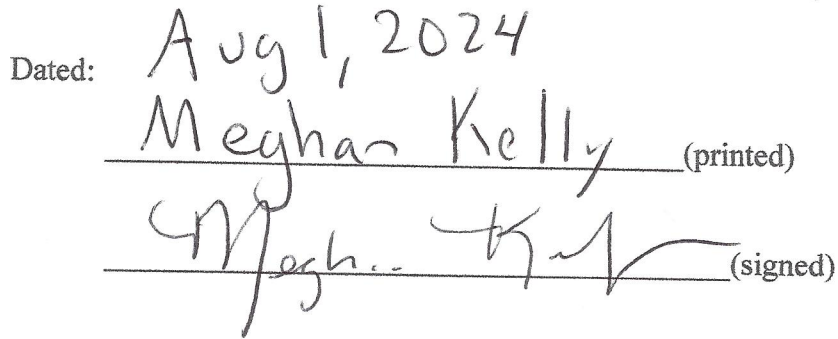 Dated: Aug 1, 2024
Meghan Kelly (printed)
Megh.. Kelly (signed)